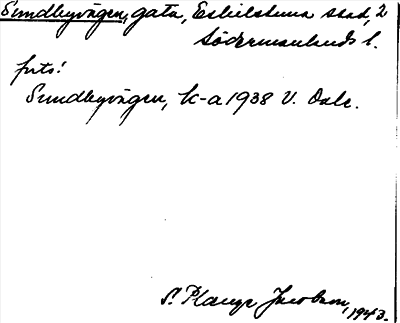 Sundbyvägen, gata, Eskilstuna stad, 2
Södermanlands l.
forts!
Sundbyvägen, k-a 1938 V. Dale.
S. Plange Jacobson, 1943.